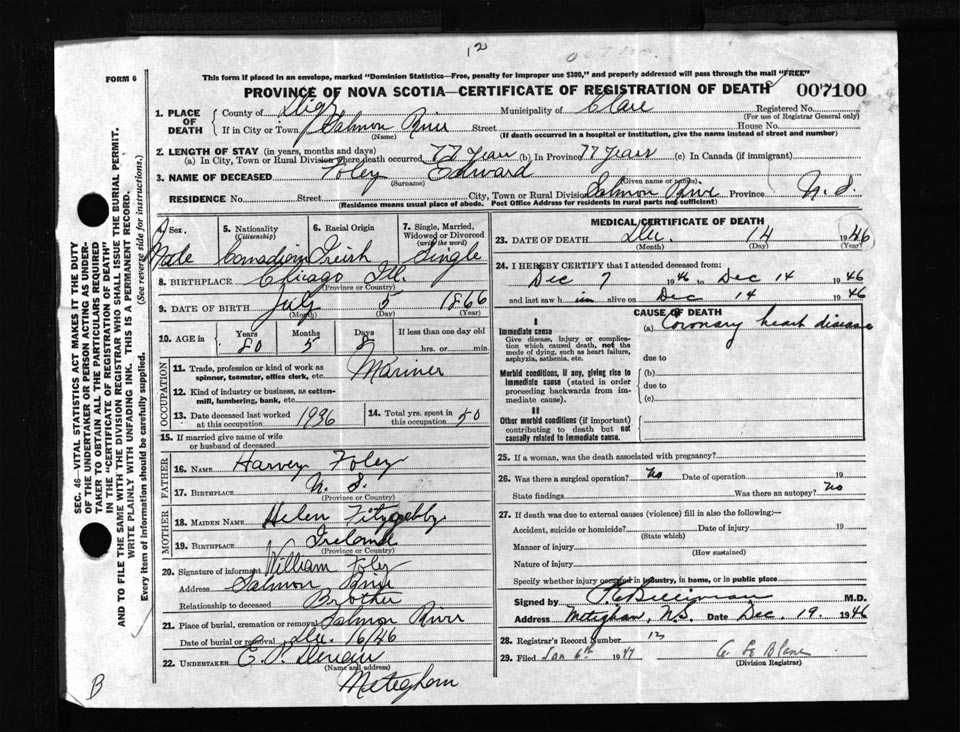 12
FORM 6
This form if placed in an envelope, marked "Dominion Statistics—Free, penalty for improper use $300," and properly addressed will pass through the mail "FREE"
PROVINCE OF NOVA SCOTIA—CERTIFICATE OF REGISTRATION OF DEATH 007100
1. PLACE OF DEATH
County of Digby Municipality of Clare Registered No.
(For use of Registrar General only)
If in City or Town Salmon River Street House No.
(Name) (If death occurred in a hospital or institution, give the name instead of street and number)
2. LENGTH OF STAY (in years, months and days)
(a) In City, Town or Rural Division where death occurred 77 years (b) In Province 77 years (c) In Canada (if immigrant)
3. NAME OF DECEASED Foley Edward
(Surname) (Given name or names)
RESIDENCE No. Street City, Town or Rural Division Salmon River Province N.S.
(Residence means usual place of abode. Post Office Address for residents in rural parts not sufficient)
4. Sex. 5. Nationality (Citizenship) 6. Racial Origin 7. Single, Married, Widowed or Divorced (write the word)
Male Canadian Irish Single
8. BIRTHPLACE Chicago Ill.
(Province or Country)
9. DATE OF BIRTH July 5 1866
(Month) (Day) (Year)
10. AGE in Years Months Days If less than one day old
80 5 hrs. or min.
OCCUPATION
11. Trade, profession or kind of work as spinner, teamster, office clerk, etc. Mariner
12. Kind of industry or business, as cotton-mill, lumbering, bank, etc.
13. Date deceased last worked at this occupation 1936 14. Total yrs. spent in this occupation 50
15. If married give name of wife or husband of deceased
FATHER
16. NAME Harvey Foley
17. BIRTHPLACE N.S.
(Province or Country)
MOTHER
18. MAIDEN NAME Helen
19. BIRTHPLACE Ireland
(Province or Country)
20. Signature of informant William Foley
Address Salmon River
Relationship to deceased Brother
21. Place of burial, cremation or removal Salmon River
Date of burial or removal Dec 16/46
22. UNDERTAKER E. P.
(Name and address)
Meteghan
MEDICAL CERTIFICATE OF DEATH
23. DATE OF DEATH Dec. 14 1946
(Month) (Day) (Year)
24. I HEREBY CERTIFY that I attended deceased from:
Dec 7 1946 to Dec 14 1946
and last saw him alive on Dec 14 1946
CAUSE OF DEATH
I
Immediate cause (a) Coronary heart disease
Give disease, injury or complication which caused death, not the mode of dying, such as heart failure, asphyxia, asthenia, etc.
due to
Morbid conditions, if any, giving rise to immediate cause (stated in order proceeding backwards from immediate cause).
(b)
due to
(c)
II
Other morbid conditions (if important) contributing to death but not causally related to immediate cause.
25. If a woman, was the death associated with pregnancy?
26. Was there a surgical operation? No Date of operation 19
State findings Was there an autopsy? No
27. If death was due to external causes (violence) fill in also the following:—
Accident, suicide or homicide? Date of injury 19
(State which)
Manner of injury
(How sustained)
Nature of injury
Specify whether injury occurred in industry, in home, or in public place
Signed by M.D.
Address Meteghan, N.S. Date Dec. 19. 1946
28. Registrar's Record Number 12
29. Filed Jan 6th 1947 LeBlanc
(Division Registrar)
SEC. 46—VITAL STATISTICS ACT MAKES IT THE DUTY
OF THE UNDERTAKER OR PERSON ACTING AS UNDER-
TAKER TO OBTAIN ALL THE PARTICULARS REQUIRED
IN THE "CERTIFICATE OF REGISTRATION OF DEATH"
AND TO FILE THE SAME WITH THE DIVISION REGISTRAR WHO SHALL ISSUE THE BURIAL PERMIT.
WRITE PLAINLY WITH UNFADING INK. THIS IS A PERMANENT RECORD.
Every item of information should be carefully supplied. (See reverse side for instructions.)
B